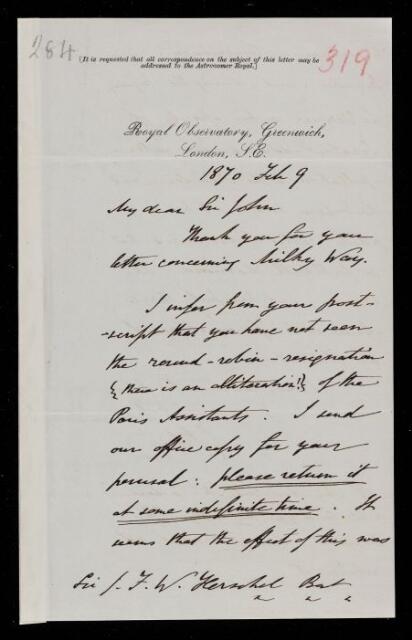 284
319
[It is requested that all correspondence on the subject of this letter may be
addressed to the Astronomer Royal.]
Royal Observatory, Greenwich,
London, S.E.
1870 Feb 9
My dear Sir John
Thank you for your
letter concerning Milky Way.
I infer from your post-
-script that you have not seen
the round-robin-resignation
{there is an alliteration!} of the
Paris Assistants. I send
our office copy for your
perusal: please return it
at some indefinite time. It
seems that the effect of this was
Sir J. F. W. Herschel Bart